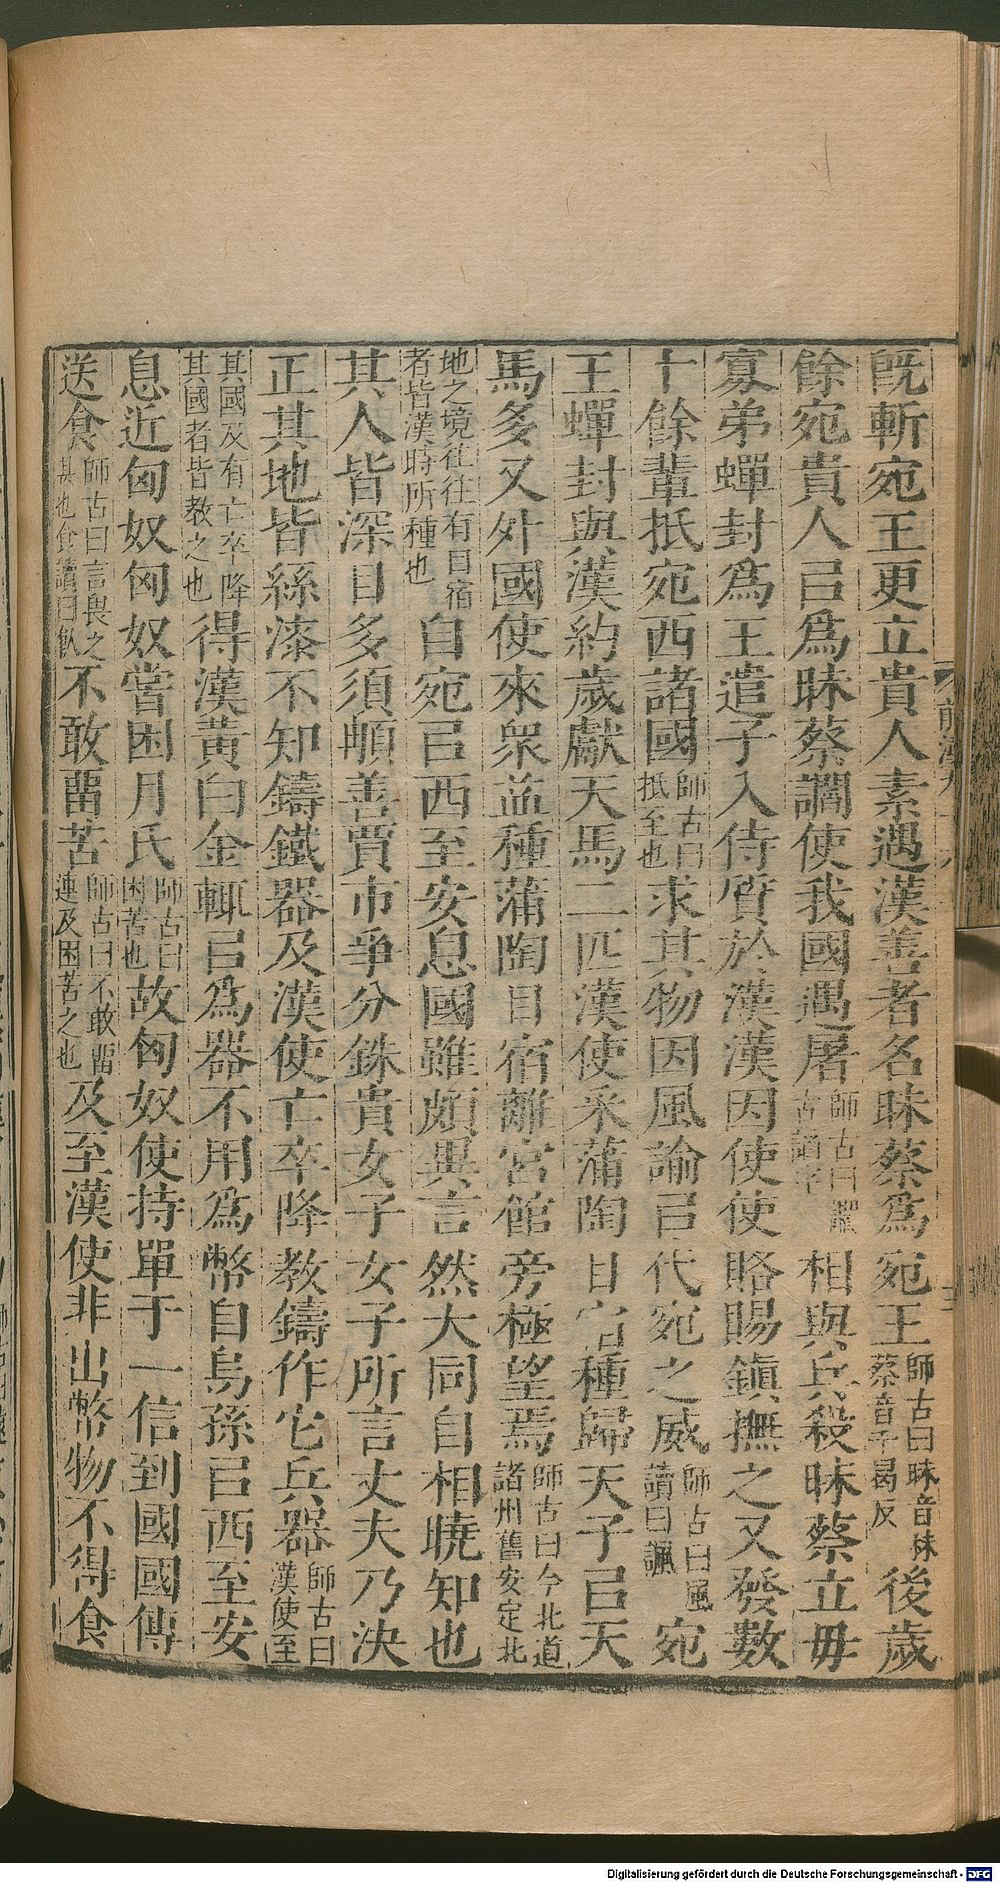 既斬宛王更立貴人素遇漢善者名昧蔡爲宛王師古曰昧音秣蔡音千曷反後歲
餘宛貴人㠯爲昧蔡讇使我國遇屠師古曰讇古諂字相與兵殺昧蔡立毋
寡弟蟬封爲王遣子入侍質於漢漢因使使賂賜鎮撫之又發數
十餘輩抵宛西諸國師古曰抵至也求其物因風諭㠯代宛之威師古曰風讀曰諷宛
王蟬封與漢約歲獻天馬二匹漢使采蒲陶目宿種歸天子㠯天
馬多又外國使來衆益種蒲陶目宿離宮館旁極望焉師古曰今北道諸州舊安定北
地之境往往有目宿者皆漢時所種也自宛㠯西至安息國雖頗異言然大同自相曉知也
其人皆深目多須頓善賈市爭分銖貴女子女子所言丈夫乃決
正其地皆絲漆不知鑄鐵器及漢使亡卒降教鑄作它兵器師古曰漢使至
其國及有亡卒降其國者皆教之也得漢黃白金輒㠯爲器不用爲幣自烏孫㠯西至安
息近匈奴匈奴嘗困月氏師古曰困苦也故匈奴使持單于一信到國國傳
送食師古曰言畏之甚也食讀曰飤不敢畱苦師古曰不敢畱連及困苦之也及至漢使非出幣物不得食
前漢九十六
Digitalisierung gefördert durch die Deutsche Forschungsgemeinschaft - DFG